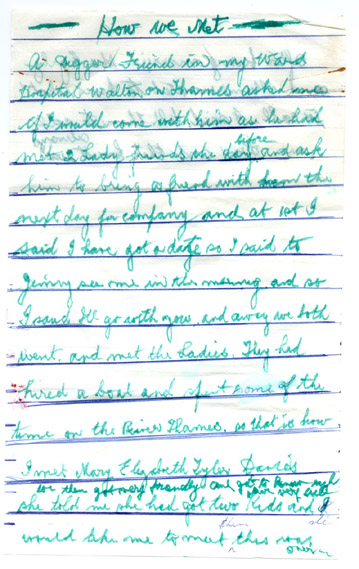 How we Met
A Digger Friend in my Ward
Hospital Walton on Thames asked me
if I would come with him as he had
met 2 Lady friends the day before and ask
him to bring a friend with him the
next day for company and at 1st I
said I have got a date so I said to
Jimmy see me in the morning and so
I said I'll go with you, and away we both
went, and met the Ladies. They had
hired a boat and spent some of the
time on the River Thames, so that is how
I met Mary Elizabeth Tyler Davies
we then got very friendly and got to know each
other very well
she told me she had got two Kids and she
would like me to meet them this was
over